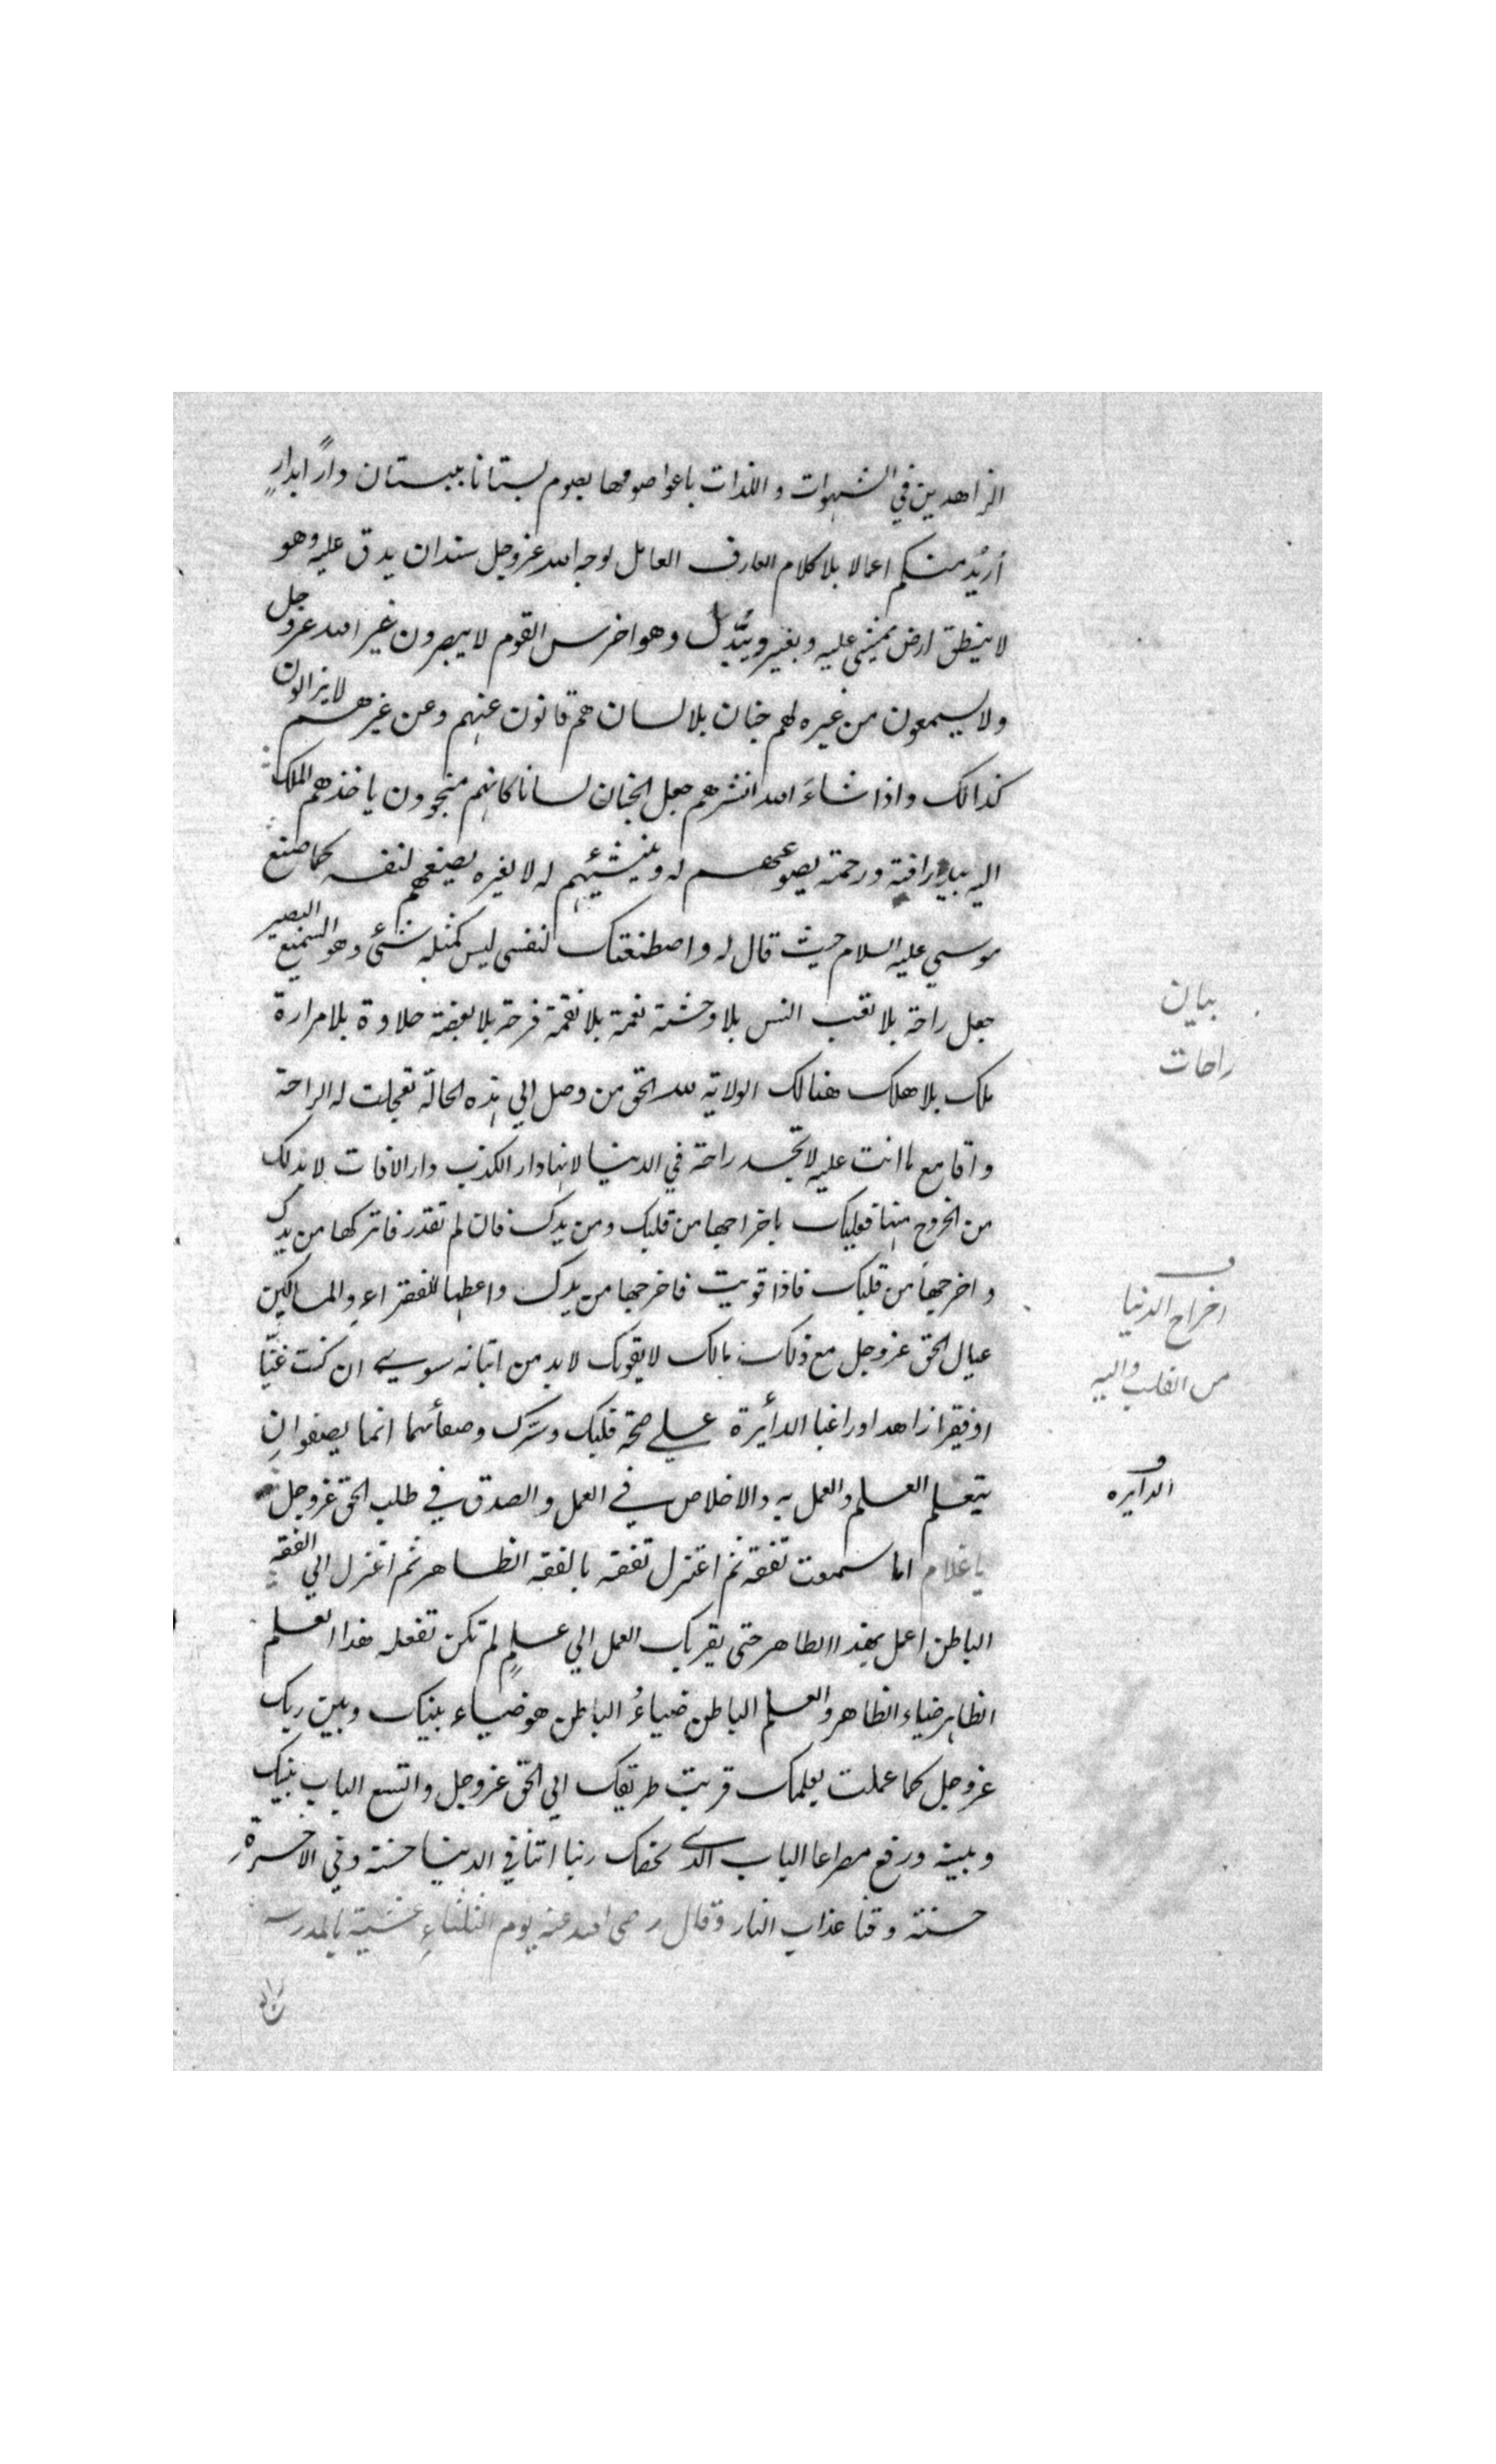 الزاهدين في الشهوات و اللذات باعوا صومها بصوم بستانا ببستان داراً بدارٍ
أُريدُ منكم اعمالا بلا كلام العارف العامل لوجه الله عزوجل سندان يدق عليه وهو
لا ينطق ارض يمشي عليه و يغير و يُبَدَّل وهو اخرس القوم لا يبصرون غير الله عزوجل
ولا يسمعون من غيره لهم جنان بلا لسان هم فانون عنهم وعن غيرهم لا يزالون
كذالك و اذا شاءَ الله انشرهم جعل الجنان لسانا كانهم مبنجوون ياخذهم الملك
اليه بيد رافة و رحمة يصوغهم له و ينشئهم له لا لغيره يصنعهم لنفسه كما صنع
موسي عليه السلام حيث قال له و اصطنعتك لنفسي ليس كمثله شئ وهو السميع البصير
جعل راحة بلا تعب انس بلا وحشة نعمة بلا نقمة فرحة بلا بغضة حلاوة بلا مرارة
ملك بلا هلك هنالك الولاية لله الحق من وصل الي هذه الحالة تعجلت له الراحة
و اما مع ما انت عليه لا تجد راحة في الدنيا لانها دار الكذب دار الافات لا بد لك
من الخروج منها فعليك باخراجها من قلبك ومن يدك فان لم تقدر فاتركها من يدك
و اخرجها من قلبك فاذا قويت فاخرجها من يدك و اعطها للفقراء و المساكين
عيال الحق عزوجل مع ذلك مالك لا يفوتك لا بد من اتيانه سوي ان كنت غنيّا
او فقيرا زاهدا او راغبا الدائرة علي صحة قلبك و سرّك و صفائهما انما يصفوان
بتعلم العلم و العمل به و الاخلاص في العمل و الصدق في طلب الحق عزوجل
يا غلام اما سمعت تفقه ثم اعتزل تفقه بالفقه الظاهر ثم اعتزل الي الفقه
الباطن اعمل بهذا الظاهر حتي يقربك العمل الي علمٍ لم تكن تفعله هذا العلم
الظاهر ضياء الظاهر و العلم الباطن ضياءُ الباطن هو ضياء بينك و بين ربك
عزوجل كما عملت بعلمك قربت طريقك الي الحق عزوجل و اتسع الباب بينك
و بينه و رفع مصراعا الباب الذي يخصك ربنا اتنا في الدنيا حسنة و في الاخرة
حسنة و قنا عذاب النار و قال رضي الله عنه يوم الثلثاءِ عشية بالمدرسة
بيان
راحات
اخراج الدنيا
من القلب و اليد
الدايره